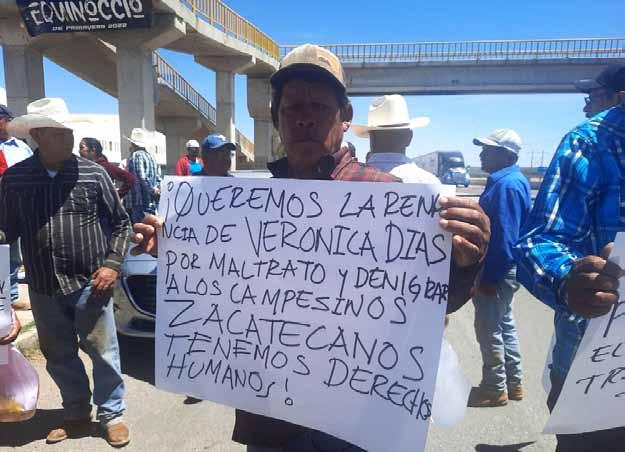 EQUINOCCIO
DE PRIMAVERA 2022
¡QUEREMOS LA RENU
NCIA DE VERONICA DIAS
POR MALTRATO Y DENIGRAR
A LOS CAMPESINOS
ZACATECANOS
TENEMOS DERECHOS
HUMANOS!
EL
TR